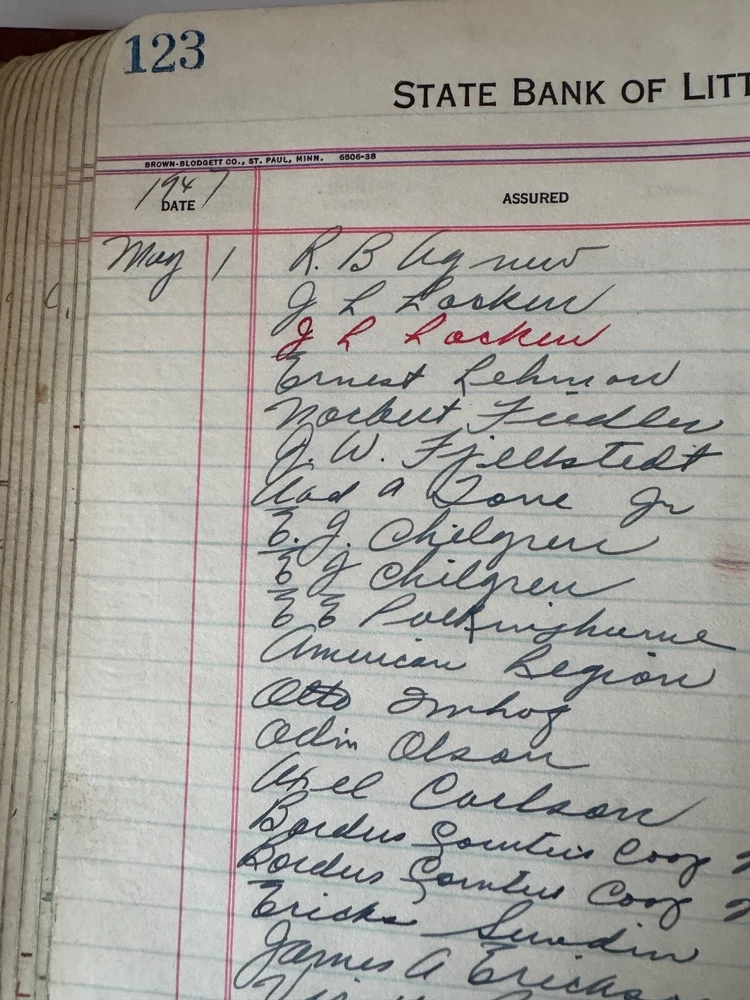 123
STATE BANK OF LITT
BROWN-BLODGETT CO., ST. PAUL, MINN. 6506-38
1947
DATE ASSURED
May 1 R. B Agnew
J L Locken
J L Locken
Ernest Lehman
Norbert Fiedler
J. W. Fjellstedt
A Jr
E. J. Chilgren
E J Chilgren
E E Polkinghorne
American Legion
Otto Imhof
Odin Olson
Axel Carlson
Counties Coop
Counties Coop
Sundin
James A